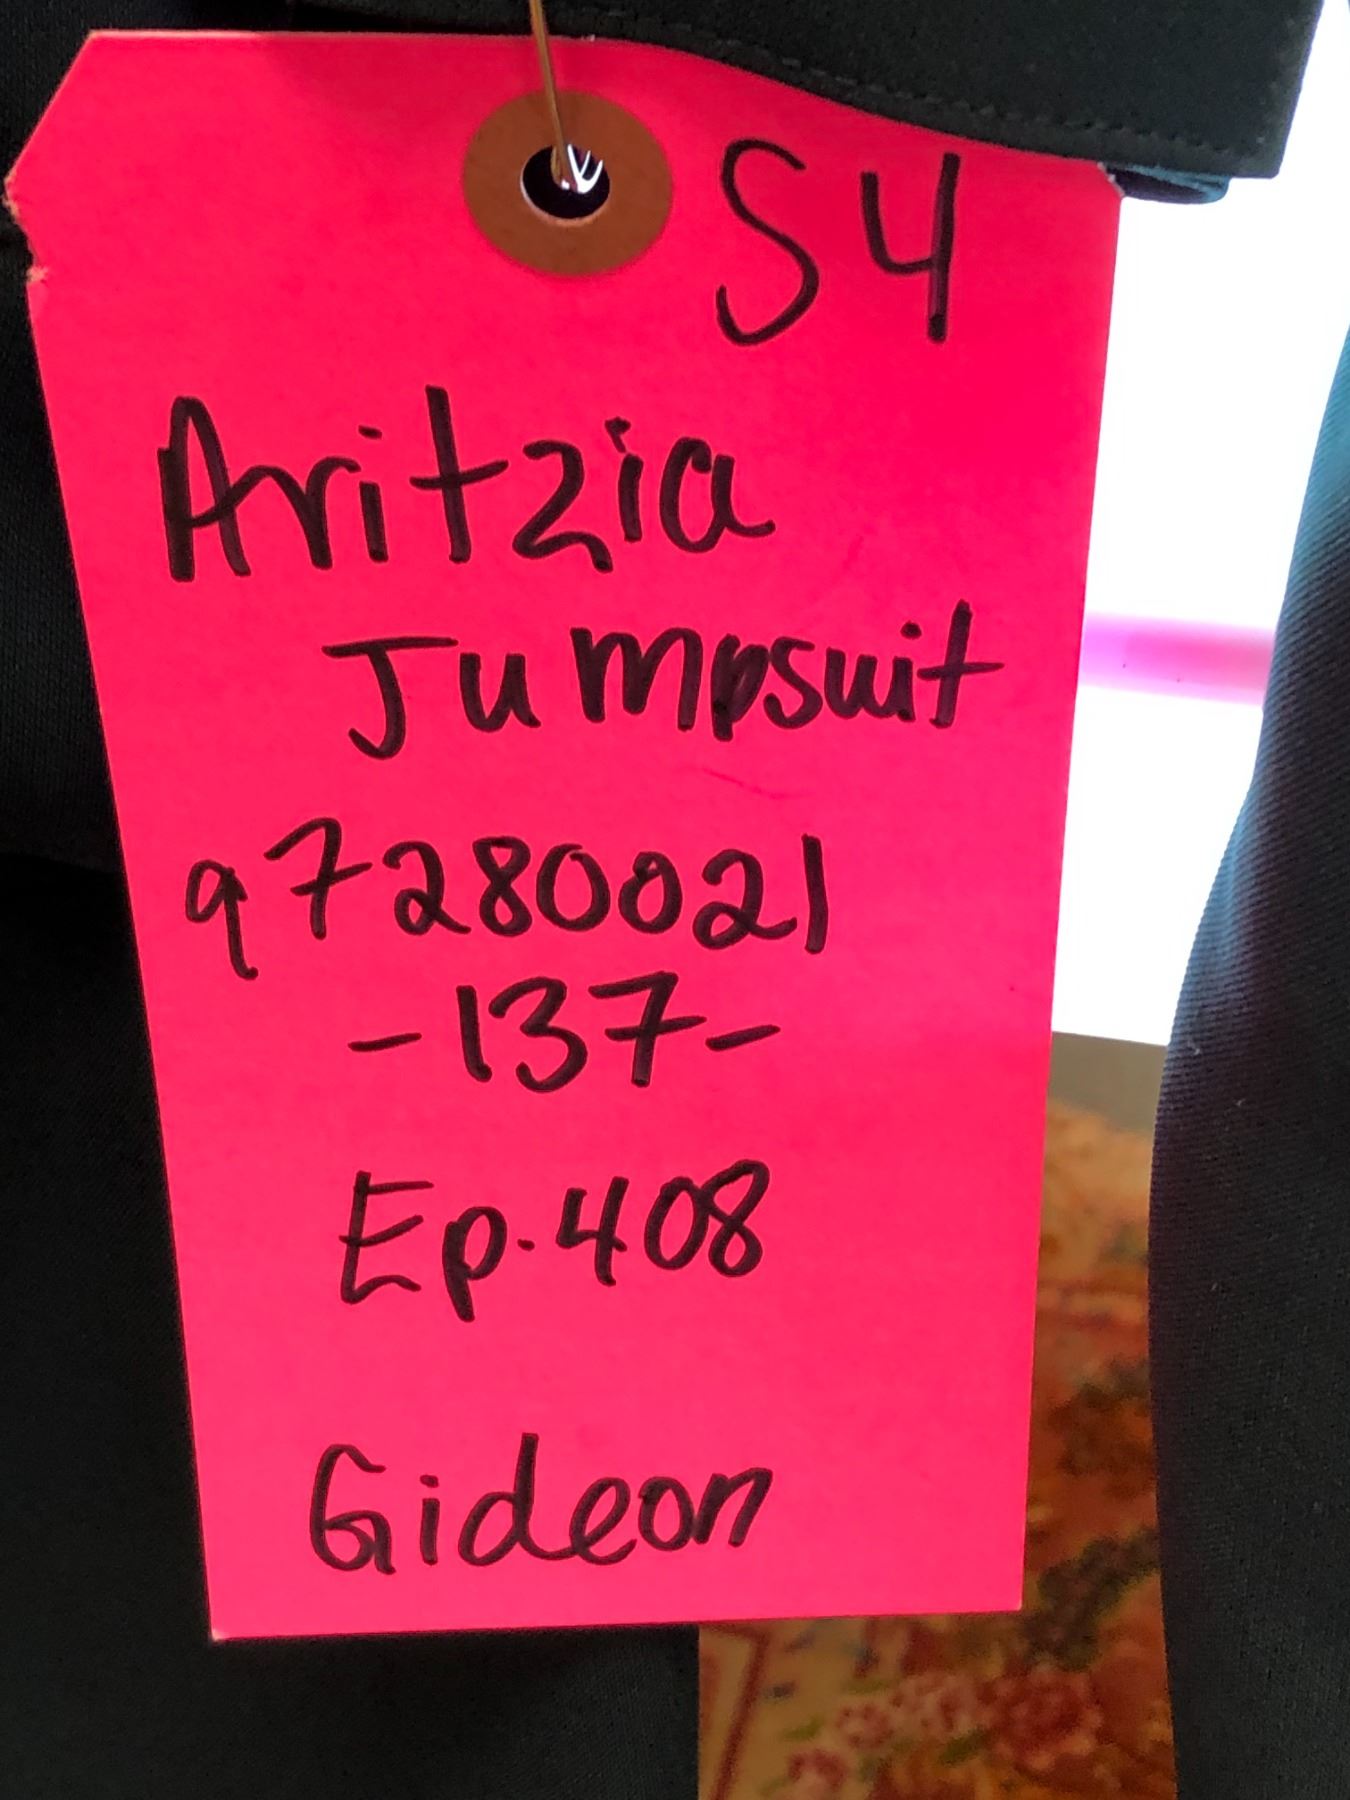 S4
Aritzia
Jumpsuit
97280021
-137-
Ep.408
Gideon